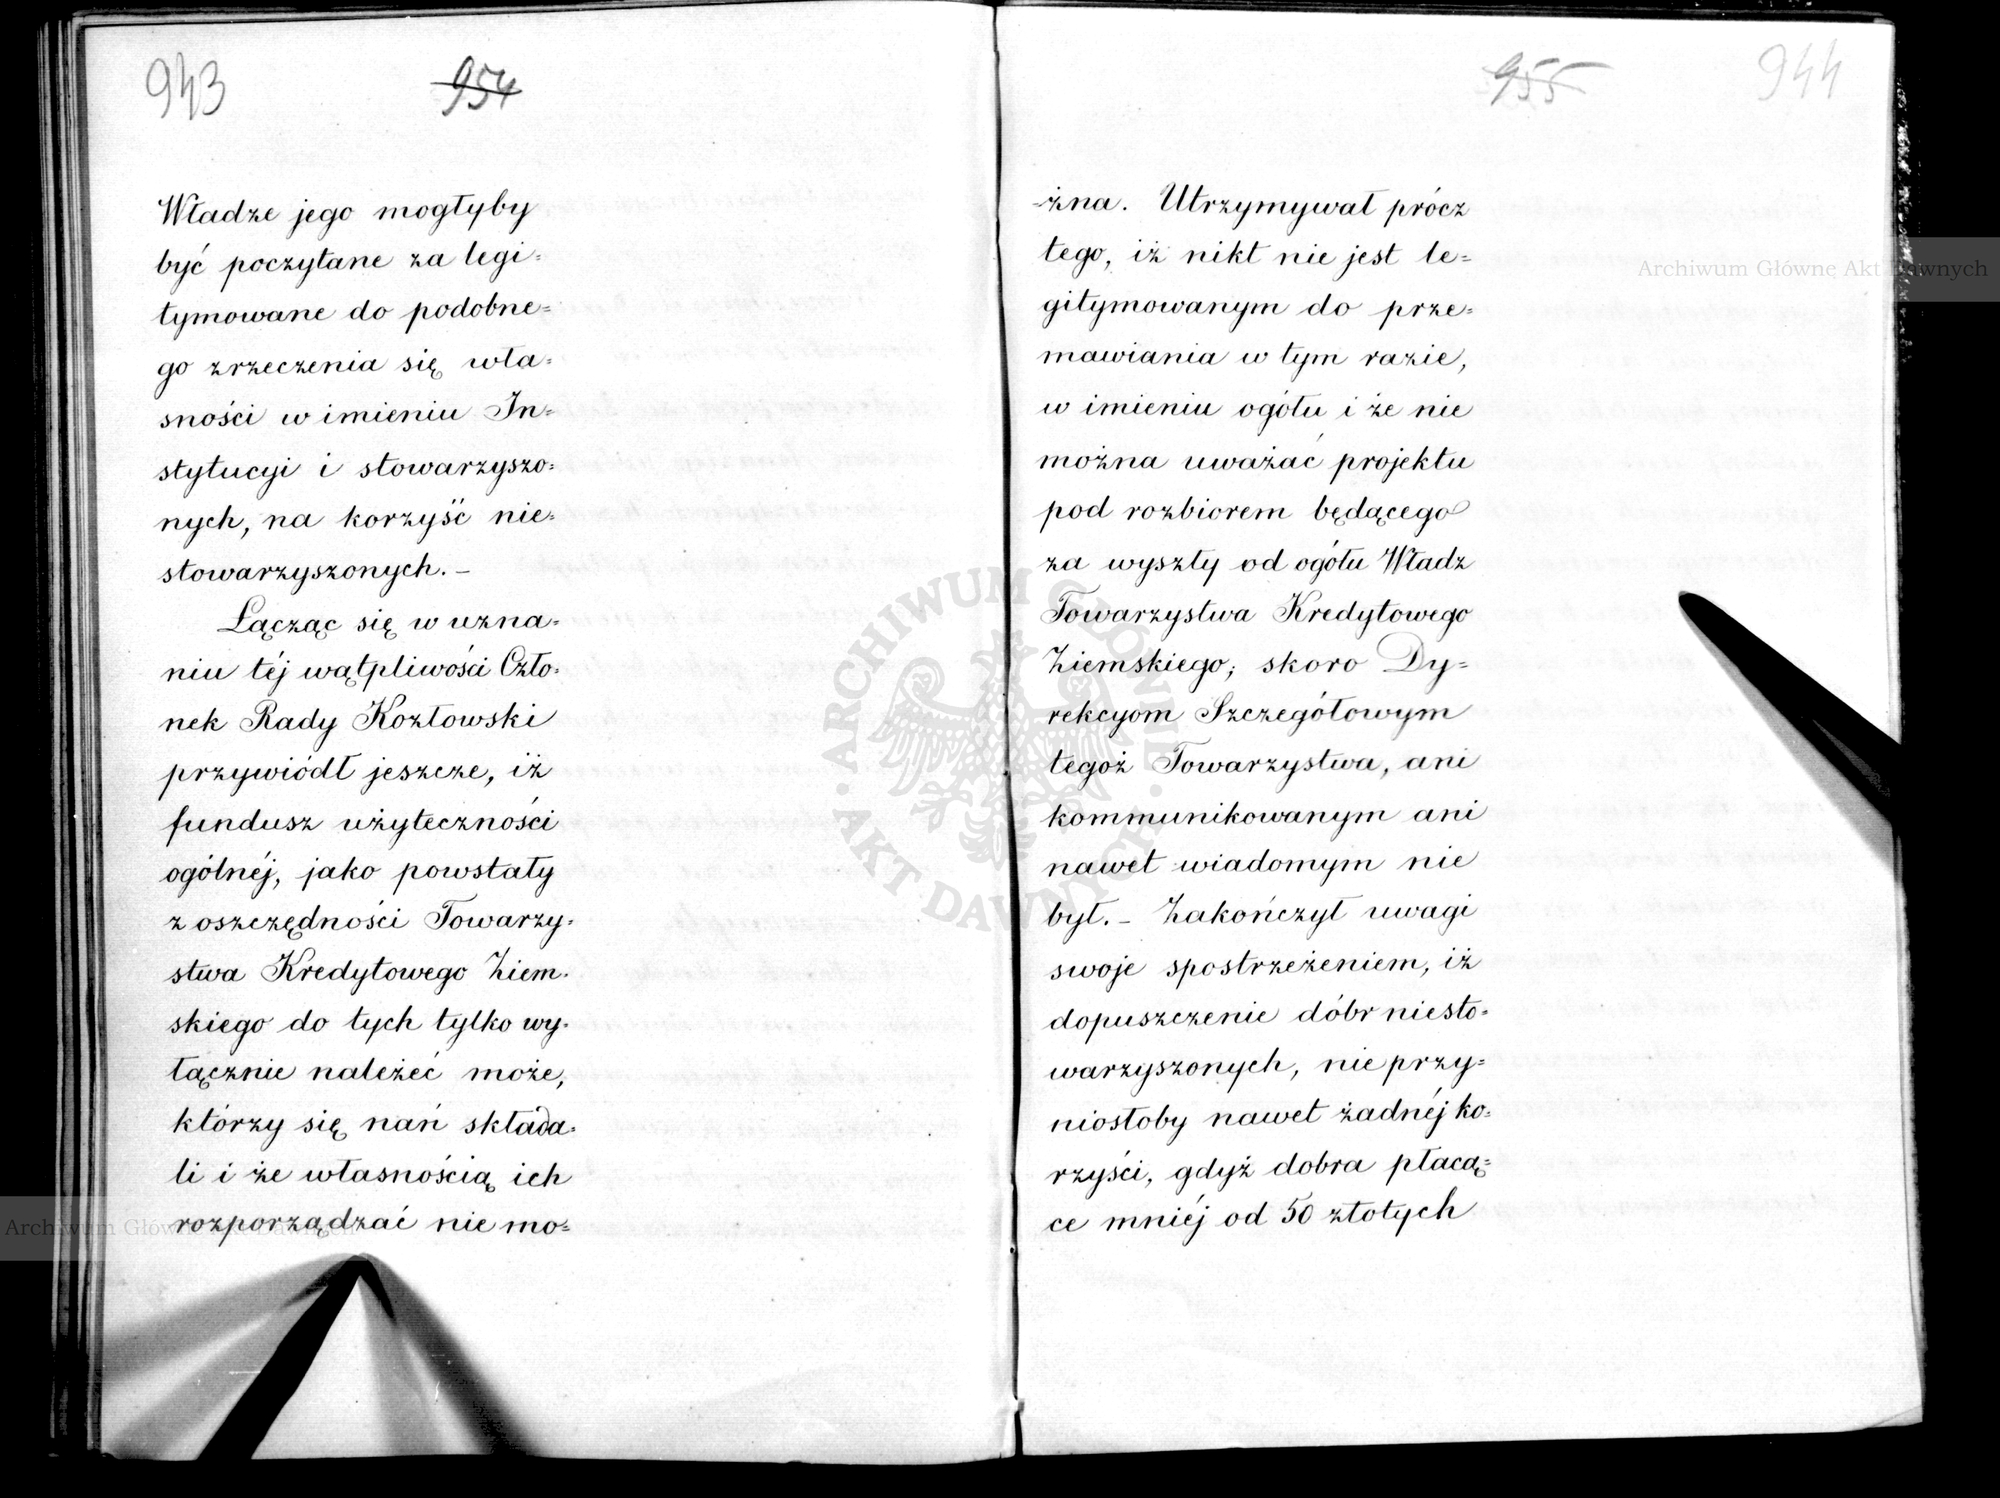 943
954
Władze jego mogłyby
być poczytane za legi=
tymowane do podobne=
go zrzeczenia się wła=
sności w imieniu In=
stytucyi i stowarzyszo=
nych, na korzyść nie=
stowarzyszonych. –
Łącząc się w uzna=
niu téj wątpliwości Czło=
nek Rady Kozłowski
przywiódł jeszcze, iż
fundusz użyteczności
ogólnéj, jako powstały
z oszczędności Towarzy=
stwa Kredytowego Ziem=
skiego do tych tylko wy=
łącznie należeć może,
którzy się nań składa=
li i że własnością ich
rozporządzać nie mo=
955
944
-żna. Utrzymywał prócz
tego, iż nikt nie jest le=
gitymowanym do prze=
mawiania w tym razie,
w imieniu ogółu i że nie
można uważać projektu
pod rozbiorem będącego
za wyszły od ogółu Władz
Towarzystwa Kredytowego
Ziemskiego; skoro Dy=
rekcyom Szczegółowym
tegoż Towarzystwa, ani
kommunikowanym ani
nawet wiadomym nie
był. – Zakończył uwagi
swoje spostrzeżeniem, iż
dopuszczenie dóbr niesto=
warzyszonych, nie przy=
niosłoby nawet żadnéj ko=
rzyści, gdyż dobra płacą=
ce mniéj od 50 złotych
Archiwum Główne Akt Dawnych
Archiwum Główne Akt Dawnych
ARCHIWUM GŁÓWNE · AKT DAWNYCH ·